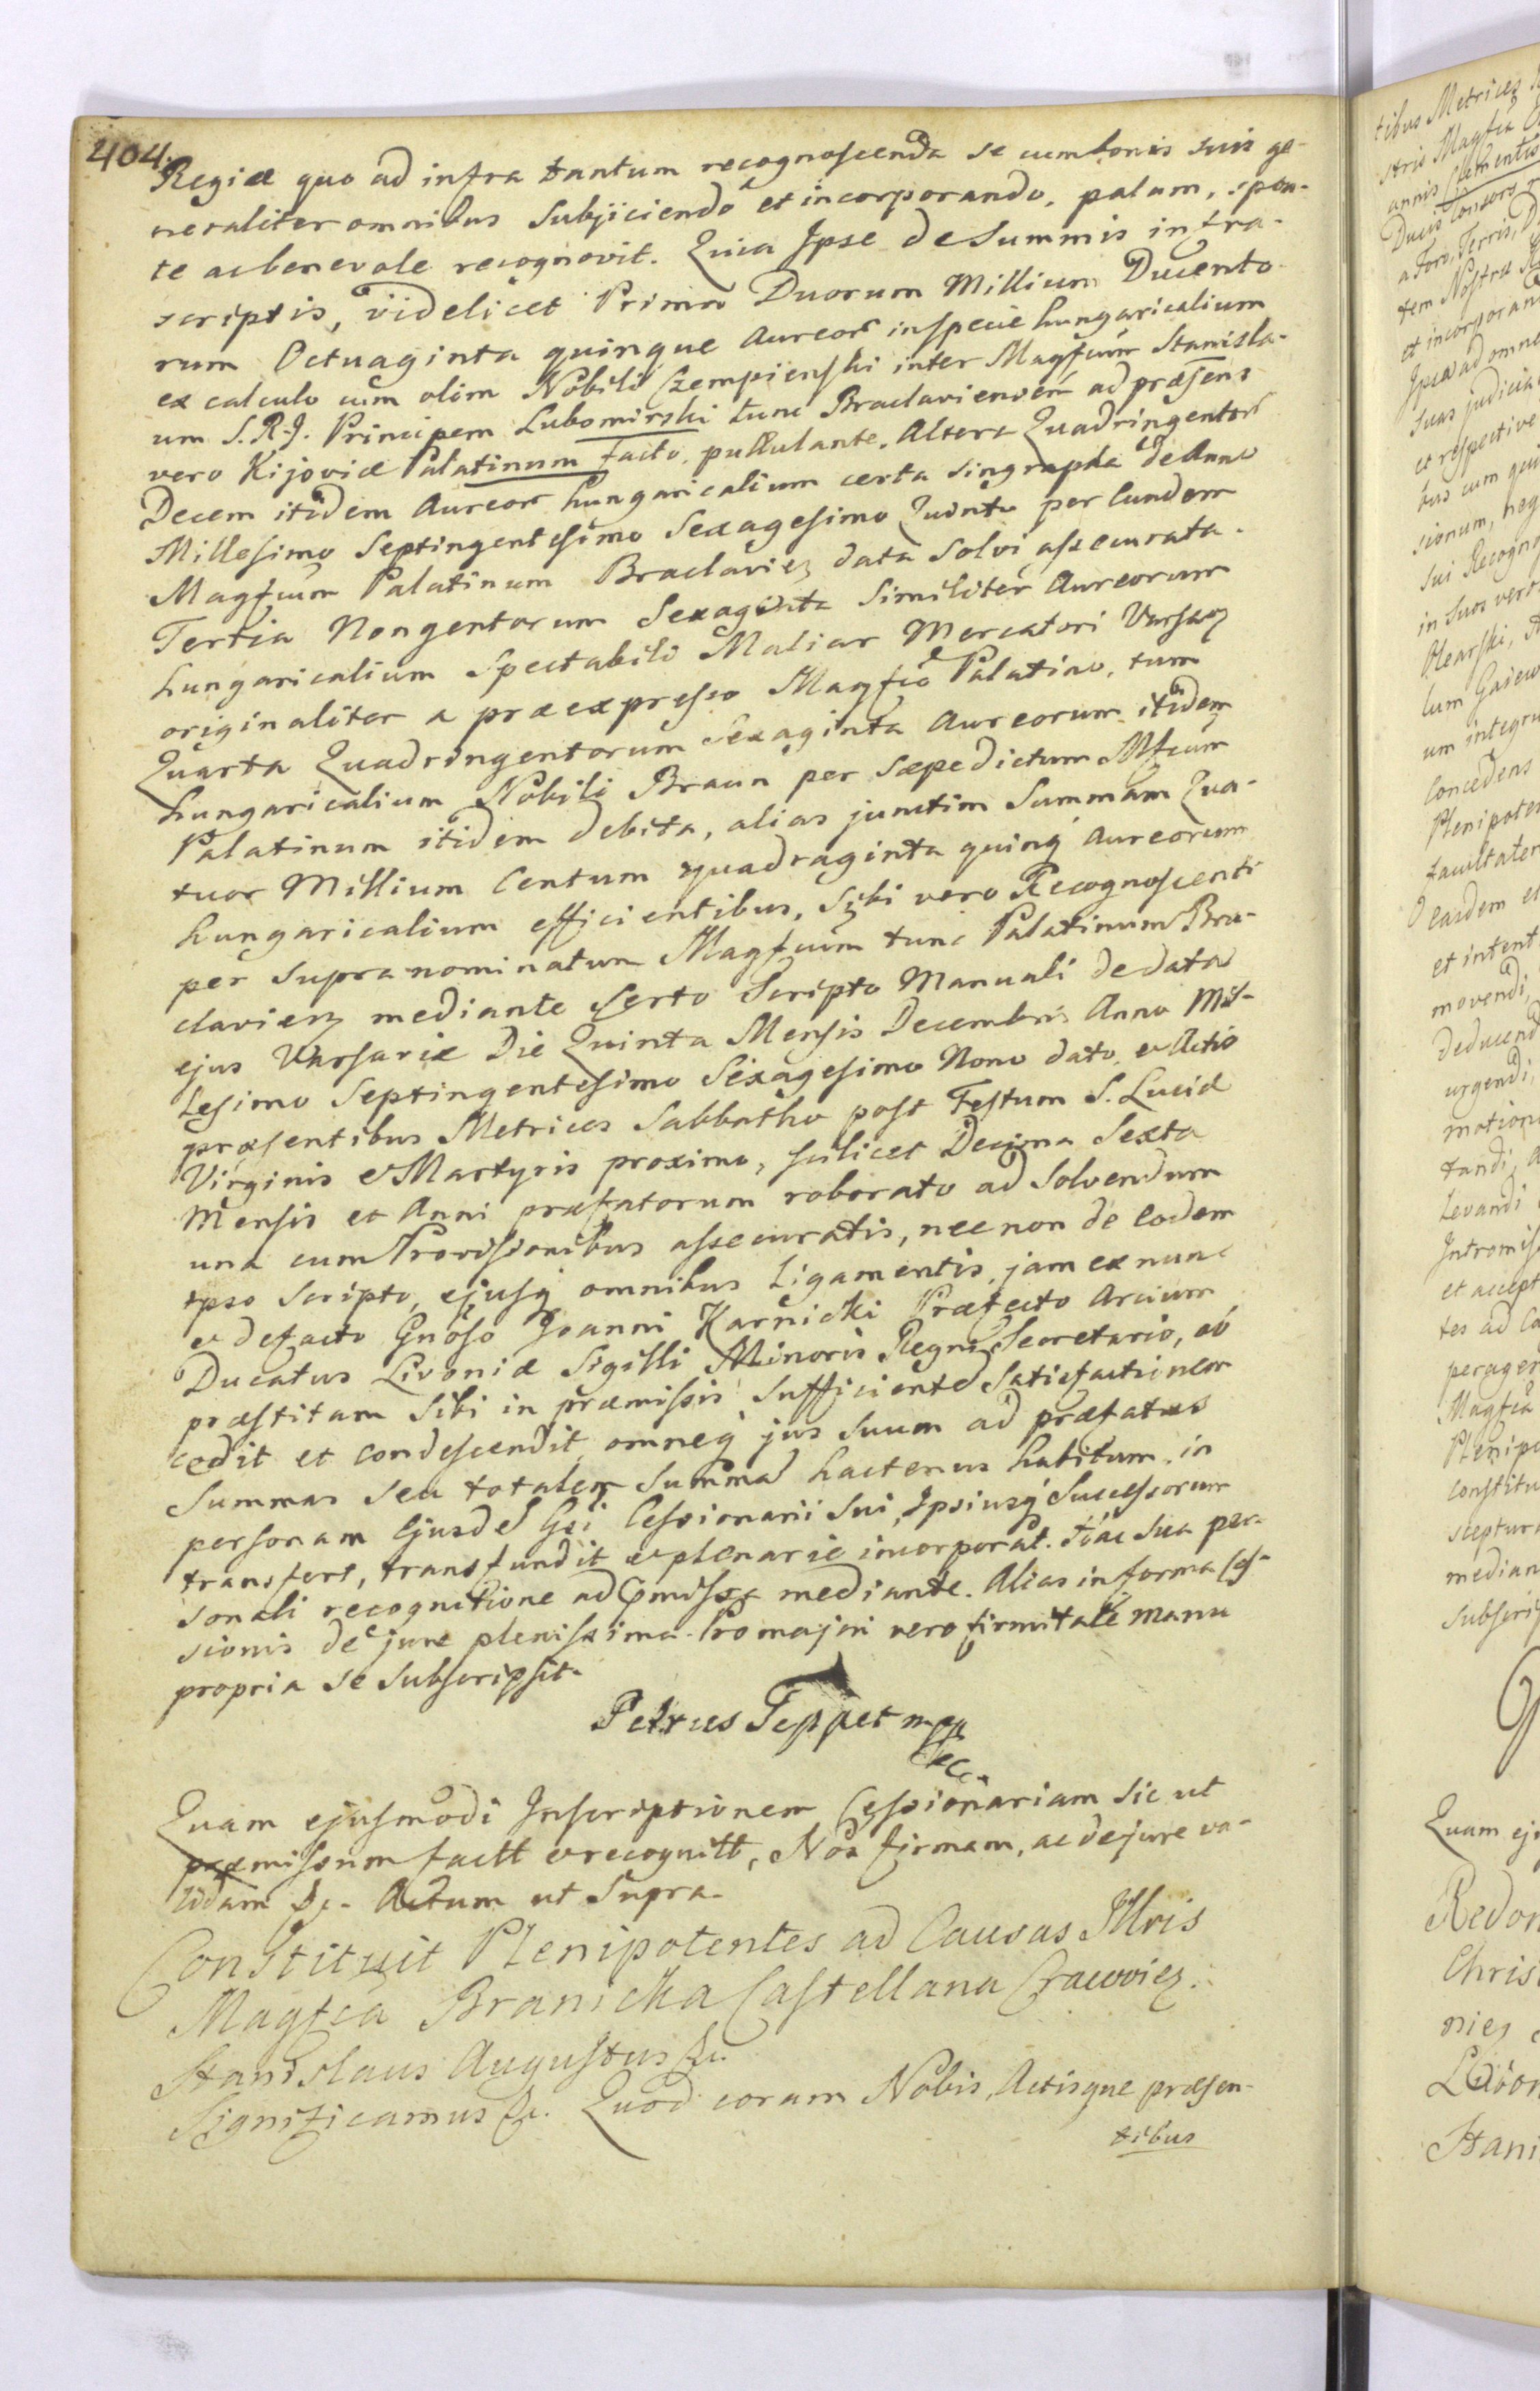 404.
Regiæ quo ad infra tantum recognoscenda se cum bonis suis ge-
neraliter omnibus Subjiciendo et incorporando, palam, spon-
te ac benevole recognovit. Quia Ipse de Summis infra-
scriptis, videlicet Prima Duorum Millium Ducento-
rum Octuaginta quinque Aureor in specie hungaricalium
ex calculo cum olim Nobili Czempienski inter Magfcum Stanisla-
um S. R. J. Principem Lubomirski tunc Braclaviensem ad præsens
vero Kijoviæ Palatinum facto, pullulante. Altera Quadringentor
Decem itidem Aureor hungaricalium certa singrapha de Anno
Millesimo Septingentesimo Sexagesimo Quinto per Eundem
Magfcum Palatinum Braclavien data Solvi assecurata.
Tertia Nongentorum Sexaginta Similiter Aureorum
hungaricalium Spectabili Maliar Mercatori Varsaen
originaliter a præexpresso Magfco Palatino, tum
Quarta Quadringentorum Sexaginta Aureorum itidem
hungaricalium Nobili Braun per Sæpedictum Mfcum
Palatinum itidem debita, alias junctim Summam Qua-
tuor Millium Centum quadraginta quinq Aureorum
hungaricalium efficientibus, Sibi vero Recognoscenti
per Supra nominatum Magfcum tunc Palatinum Bra-
clavien mediante Certo Scripto Manuali de data
ejus Varsaviæ Die Quinta Mensis Decembris Anno Mil-
lesimo Septingentesimo Sexagesimo Nono dato, & Actis
præsentibus Metrices Sabbatho post Festum S. Luciæ
Virginis & Martyris proximo, scilicet Decima Sexta
Mensis et Anni præfatorum roborato ad Solvendum
una cum Provisionibus assecuratis, nec non de Eodem
ipso Scripto, ejusq omnibus Ligamentis, jam ex nunc
& de facto Gnoso Joanni Karnicki Præfecto Arcium
Ducatus Livoniæ Sigilli Minoris Regni Secretario, ob
præstitam Sibi in præmissis Sufficientem Satisfactionem
cedit et condescendit omneq jus Suum ad præfatas
Summas Seu totalem Summam hactenus habitum, in
personam Ejusdem Gsi Cessionarii Sui, Ipsiusq Successorum
transfert, transfundit & plenarie incorporat. Hac Sua per-
sonali recognitione ad præmissa mediante. Alias in forma Ces-
sionis de jure plenissima. Pro majori vero firmitate manu
propria se Subscripsit.
Petrus Tepper mpp
Quam ejusmodi Inscriptionem Cessionariam Sic ut
præmissum factt & recognitt, Nos firmam, ac de jure va-
lidam &c. Actum ut Supra.
Constituit Plenipotentes ad Causas Illris
Magfca Branicka Castellana Cracovien.
Stanislaus Augustus &c.
Significamus &c. Quod coram Nobis, Actisque præsen-
tibus